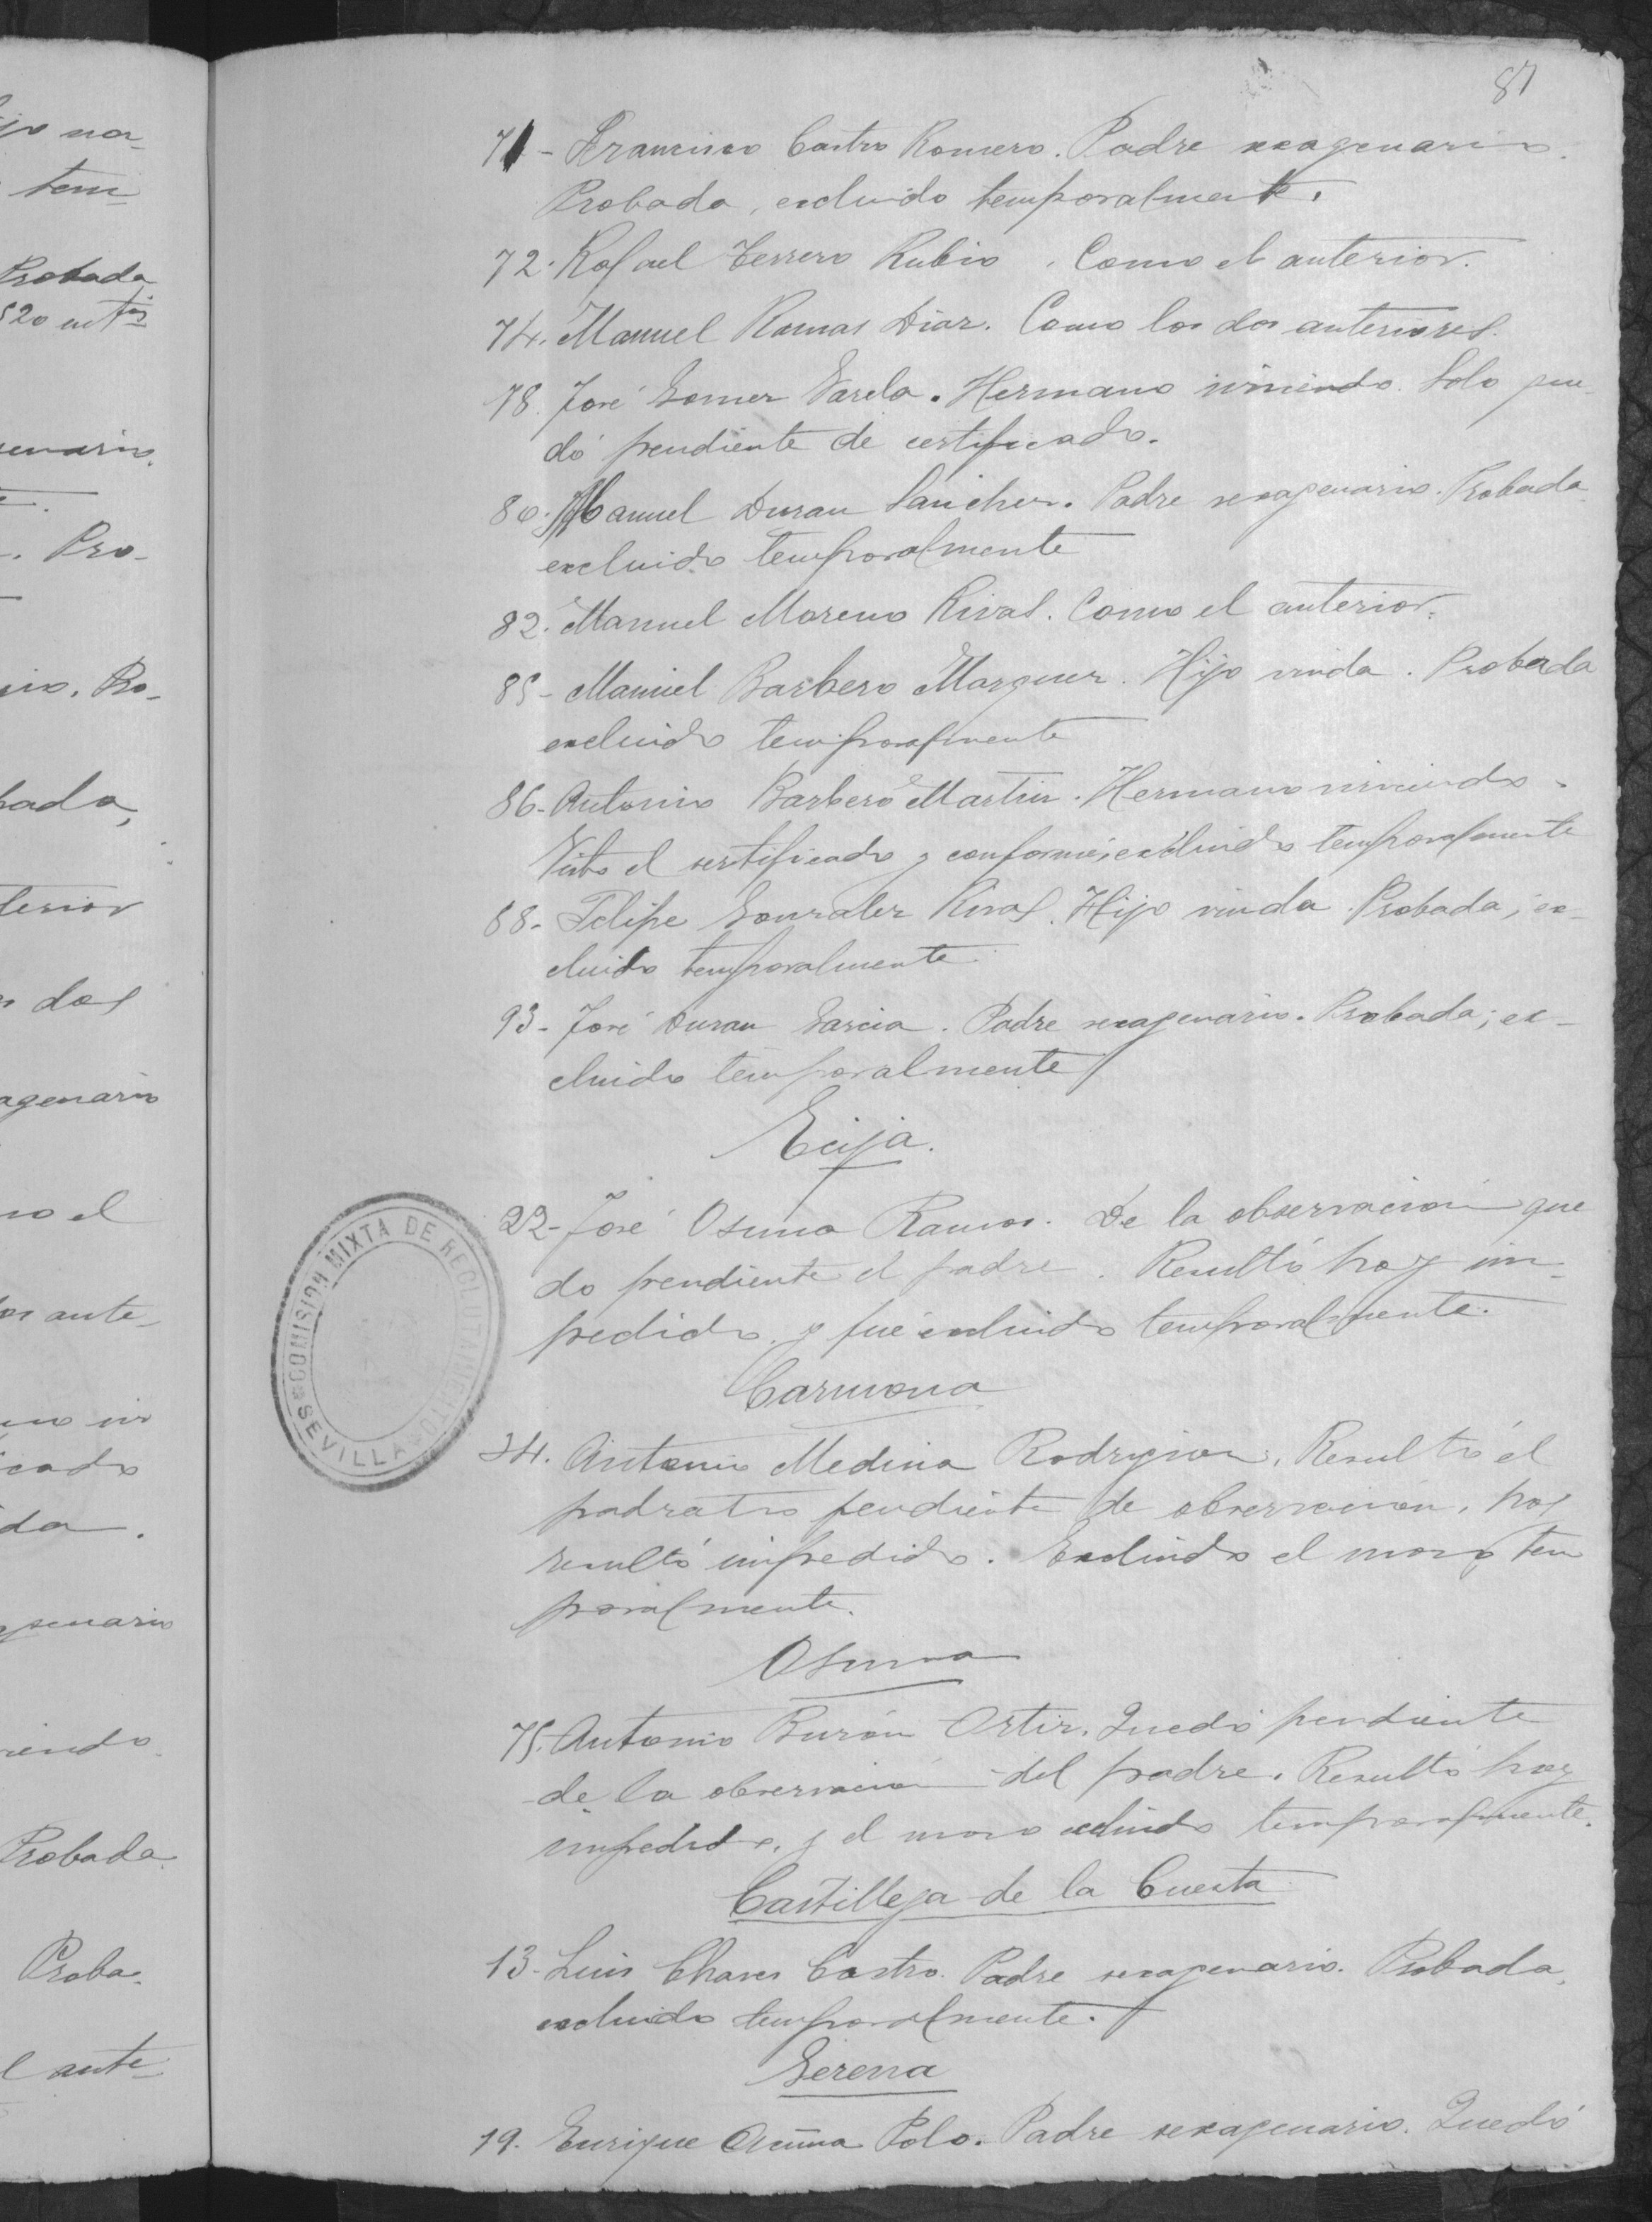 87
71 - Francisco Castro Romero. Padre sexagenario.
Probada, excluido temporalmente.
72. Rafael Terrero Rubio. Como el anterior.
74. Manuel Ramas Diaz. Como los dos anteriores.
78. José Gomez Varela. Hermano sirviendo. Solo que-
dó pendiente de certificado.
80. Manuel Duran Sanchez. Padre sexagenario. Probada
excluido temporalmente
82. Manuel Moreno Rivas. Como el anterior.
85 - Manuel Barbero Marquez. Hijo viuda. Probada
excluido temporalmente
86 - Antonio Barbero Martin. Hermano sirviendo.
Visto el certificado y conforme, excluido temporalmente
88 - Felipe Gonzalez Rivas. Hijo viuda. Probada; ex-
cluido temporalmente.
93 - José Duran Garcia. Padre sexagenario. Probada; ex-
cluido temporalmente
Ecija.
22 - José Osuna Ramos. De la observación que
do pendiente el padre. Resultó hoy im-
pedido, y fué excluido temporalmente.
Carmona
34. Antonio Medina Rodriguez. Resultó el
padrastro pendiente de observacion, hoy
resultó impedido. Excluido el mozo tem
poralmente.
Osuna
75. Antonio Burón Ortiz. Quedó pendiente
de la observacion del padre. Resultó hoy
impedido, y el mozo excluido temporalmente.
Castilleja de la Cuesta
13 - Luis Chaves Castro. Padre sexagenario. Probada,
excluido temporalmente.
Gerena
19. Enrique Polo. Padre sexagenario. Quedó
COMISION MIXTA DE RECLUTAMIENTO
SEVILLA